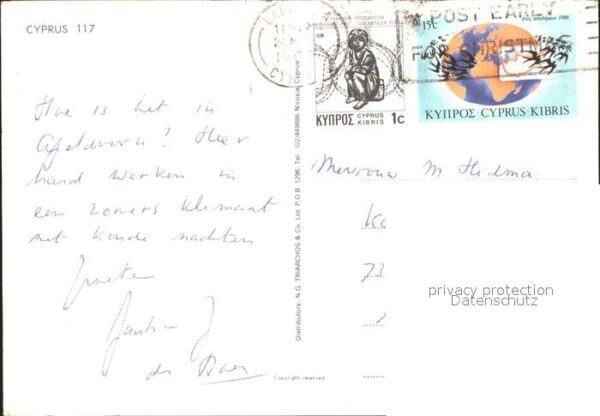 CYPRUS 117
Hoe is het in
Apeldoorn? Hier
hard werken in
een zomers klimaat
met koude nachten
Groeten
Distributors: N.G. TRIARCHOS & Co. Ltd. P.O.B. 1296. Tel. (02)449886 Nicosia, Cyprus
Copyright reserved
POST EARLY
FOR CHRISTMAS
ΚΥΠΡΟΣ CYPRUS KIBRIS 1c
1st
ΚΥΠΡΟΣ CYPRUS KIBRIS
Mevrouw M. Hidma
73
privacy protection
Datenschutz